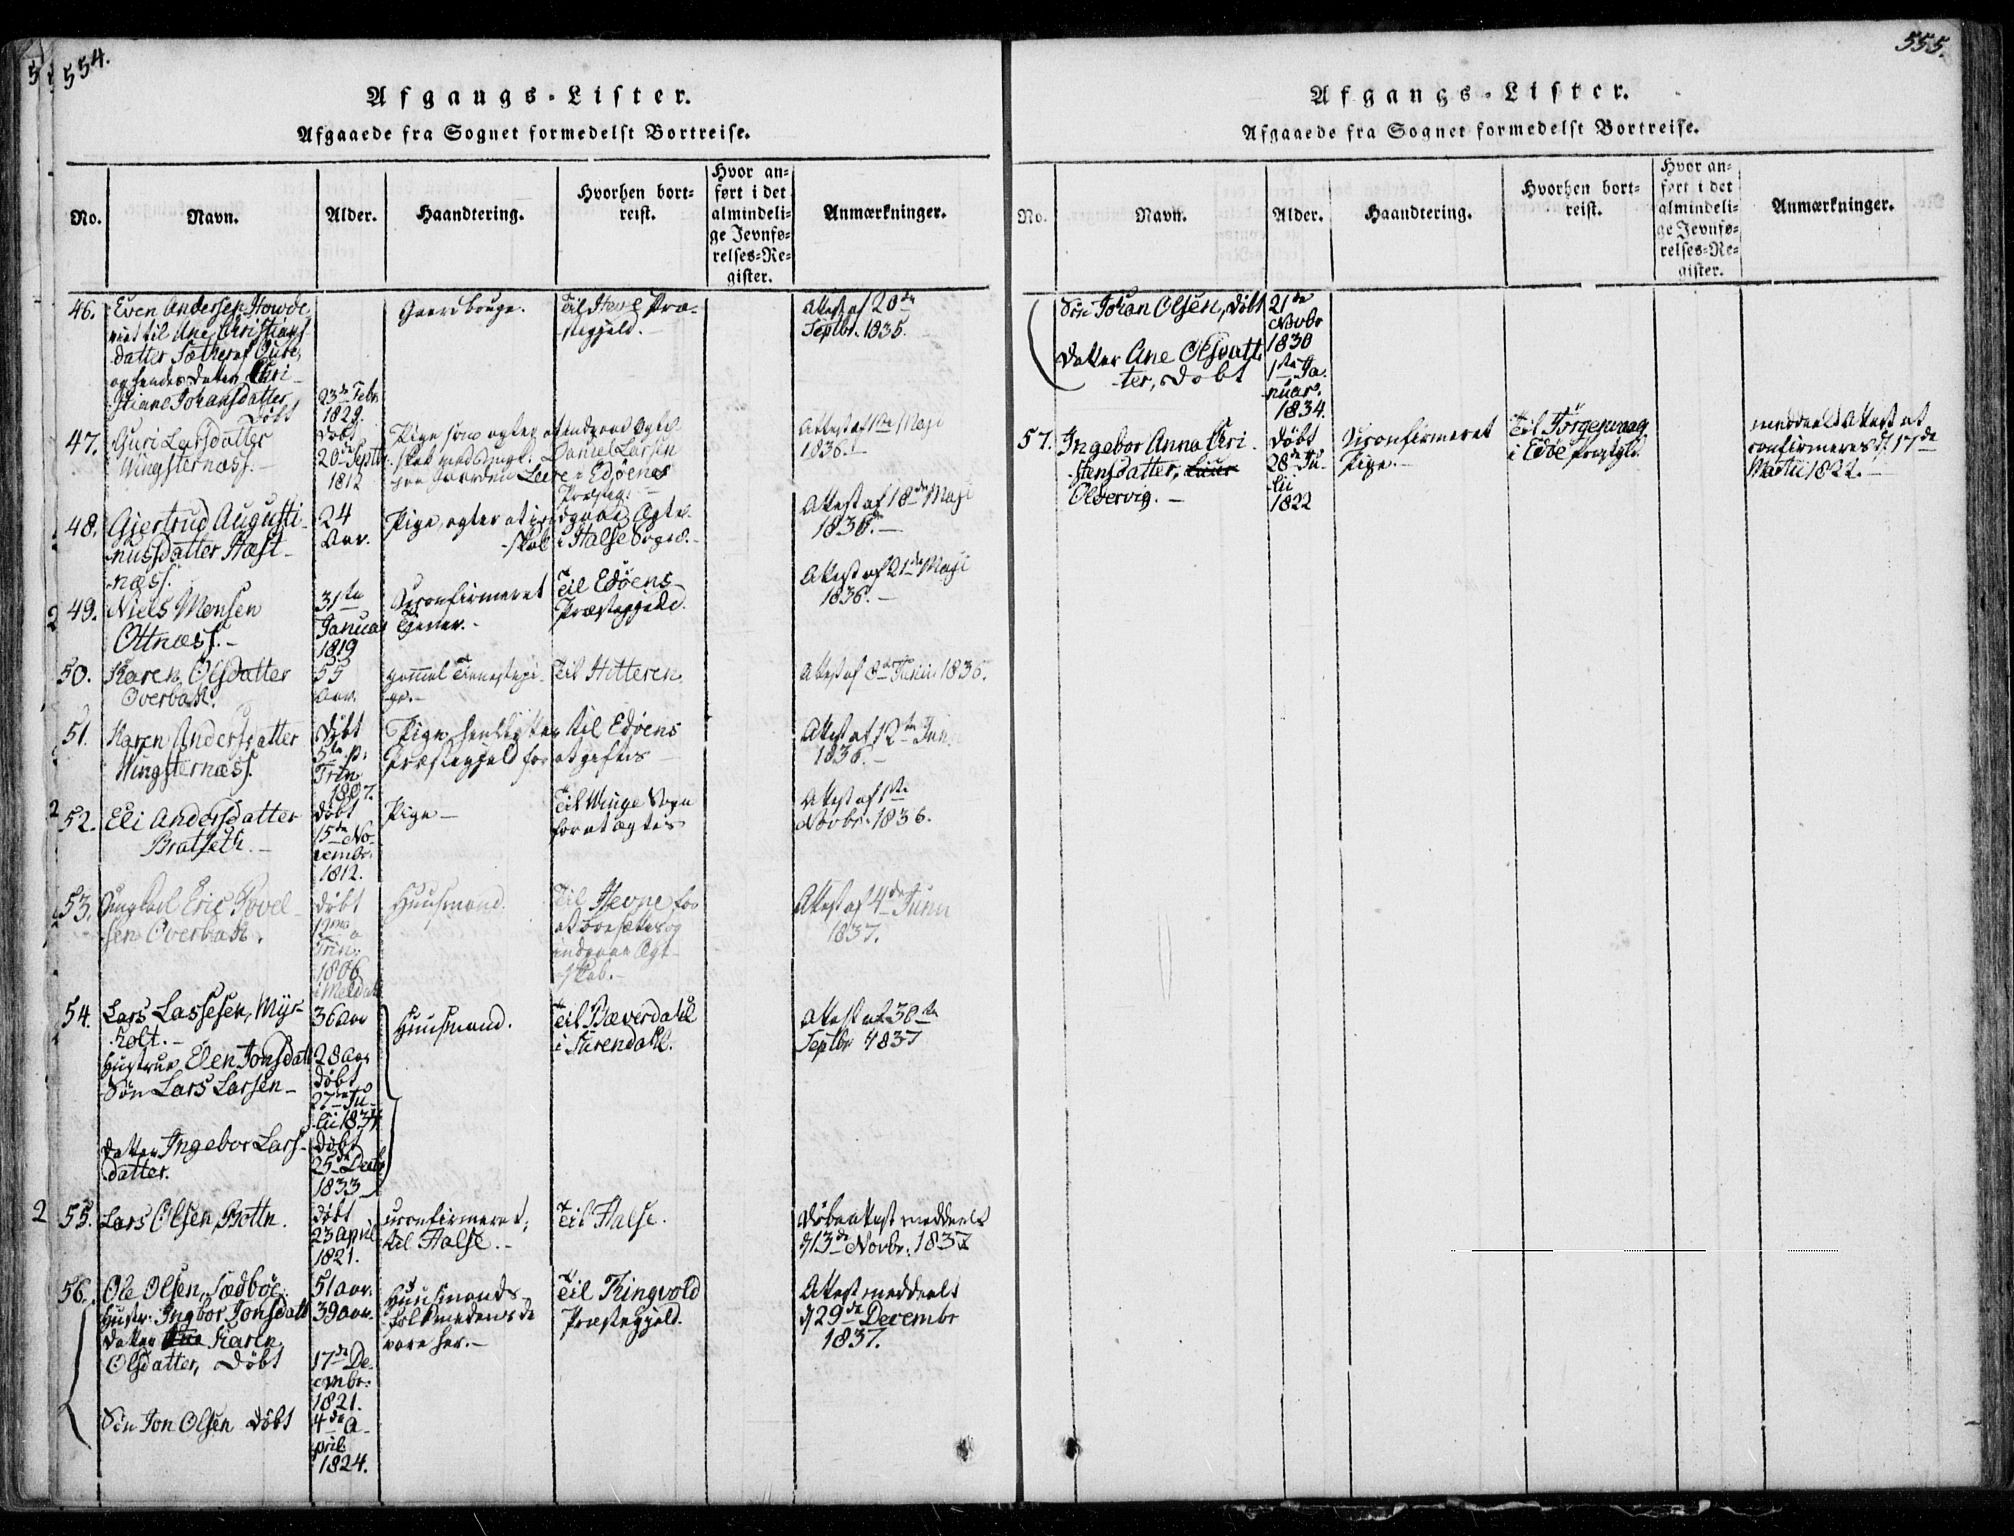 554.
Afgangs-Lister.
Afgaaede fra Sognet formedelst Bortreise.
No.
Navn.
Alder.
Haandtering.
Hvorhen bort-
reist.
Hvor an-
ført i det
almindeli-
ge Jevnfø-
relses-Re-
gister.
Anmærkninger.
46. Even Andersen Howde
viet til Ane Christians
datter Sætheraf Aure,
og hendes datter Chri-
stiane Johansdatter,
Døbt
23de Febr
1829.
Gaardbruge.
Til Hevne Præ-
stegjeld.
Attest af 20de
Septbr. 1835.
47. Guri Larsdatter
Wingsternæss.
døbt
20de Septbr
1812
Pige som agter at indgaae Ægte-
skab med Daniel Larsen
paa Gaarden i Edøens
Præsteg:
Attest af Maji
1836.
48. Gjertrud Augusti-
nusdatter Hæst-
næss.
24
Aar.
Pige, agter at indgaae Ægte-
skab i Halse Sogn.
Attest af 18de Maji
1836.
49. Niels Monsen
Ottnæss.
31te
Januar
1819
Uconfirmeret
Tjener.
Til Edøens
Præstegjeld.
Attest af 21de Maji
1836.
50. Karen Olsdatter
Overbakk.
55
Aar.
gammel Tienestepi-
ge.
Til Hitteren.
Attest af Junii 1836.
51. Karen Andersdatter
Wingsternæss.
Døbt
5te p.
Trin
1807.
Pige, henflytter til Edøens
Præstegjeld for at giftes
Attest af 12te Junii
1836.
52. Eli Andersdatter
Bratseth.
døbt
15de No-
vembr.
1812.
Pige
Til Winge Sogn
for at ægtes
Attest af 1ste
Novbr. 1836.
53. Ungkarl Eric Povel-
sen Overbakk.
døbt
Trin:
1806
i Meldal
Huusmand.
Til Hevne for
at bosættes og
indgaae Ægt-
skab.
Attest af 4de Junii
1837.
54. Lars Lassesen, Myr-
holt.
Hustrue, Elen Jonsdatt
Søn Lars Larsen
datter Ingebor Lars-
datter.
36 Aar
28 Aar
døbt
27de Ju-
lii 1834
døbt
25de Decbr
1833
Huusmand.
Til Bæverdahl
i Surendahl.
Attest af 30te
Septbr 1837
55. Lars Olsen, Bottn.
døbt
23 April
1821.
uconfirmeret,
til Halse.
Til Halse.
Døbeattest meddeelt
d 13de Novbr. 1837
56. Ole Olsen, Sædbøe.
Hustr. Ingbor Jonsdatt
Datter Karen
Olsdatter, Døbt
Søn Jon Olsen Døbt
51 aar.
39 aar.
17de De-
cembr.
1821.
4de A-
pril
1824.
Huusmands-
folk medens de
vare her.
Til Tingvold
Præstegjeld.
Attest meddeelt
d 29de Decembr
1837.
555.
Afgangs-Lister.
Afgaaede fra Sognet formedelst Bortreise.
No.
Navn.
Alder.
Haandtering.
Hvorhen bort-
reist.
Hvor an-
ført i det
almindeli-
ge Jevnfø-
relses-Re-
gister.
Anmærkninger.
Søn Johan Olsen, døbt
Datter Ane Olsdatt-
ter, Døbt
21de
Novbr
1830
1ste Ja-
nuar
1834.
57. Ingebor Anna Chri-
stensdatter,
Oldervig.
døbt
28de Ju-
lii
1822
Uconfirmeret
Pige.
Til Jørgenvaag
i Edøe Præstgld.
meddeelt Attest at
confirmeres d. 17de
Martii 1822.